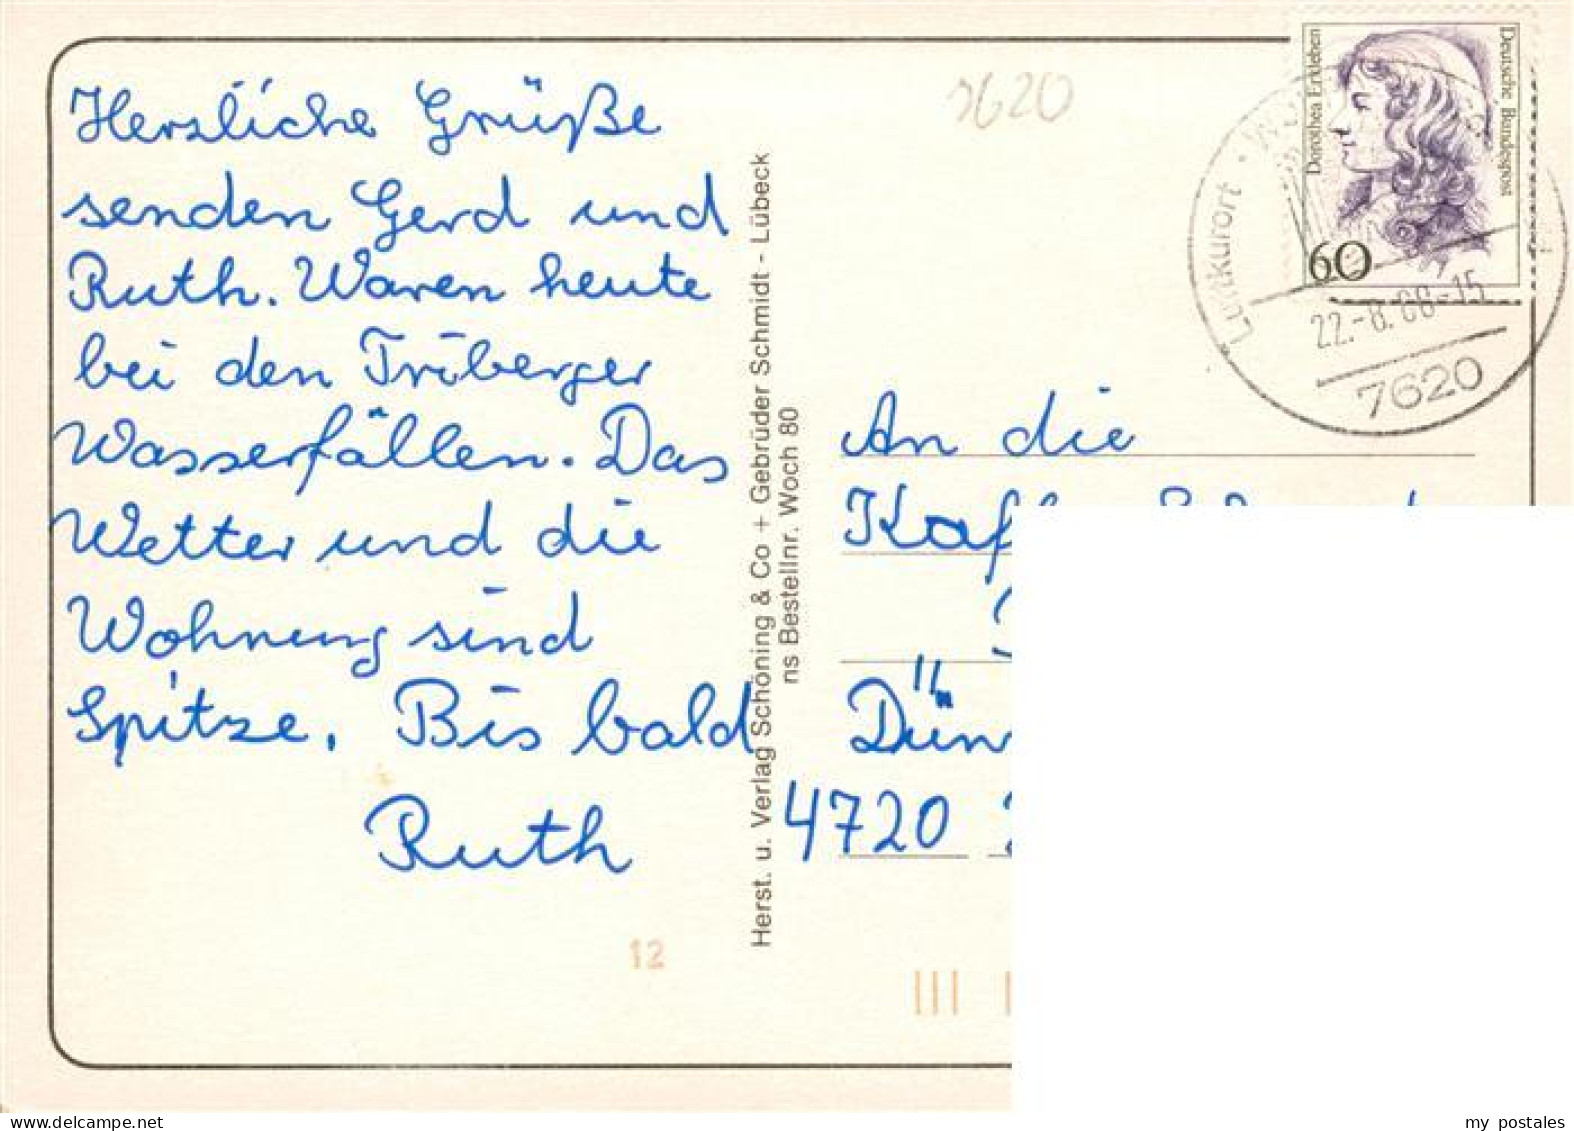 Herzliche Grüße
senden Gerd und
Ruth. Waren heute
bei den Triberger
Wasserfällen. Das
Wetter und die
Wohnung sind
Spitze. Bis bald
Ruth
12
Herst. u. Verlag Schöning & Co + Gebrüder Schmidt - Lübeck
ns Bestellnr. Woch 80
7620
Dorothea Erxleben
Deutsche Bundespost
60
Luftkurort
7620
An die
4720
my postales
www.delcampe.net